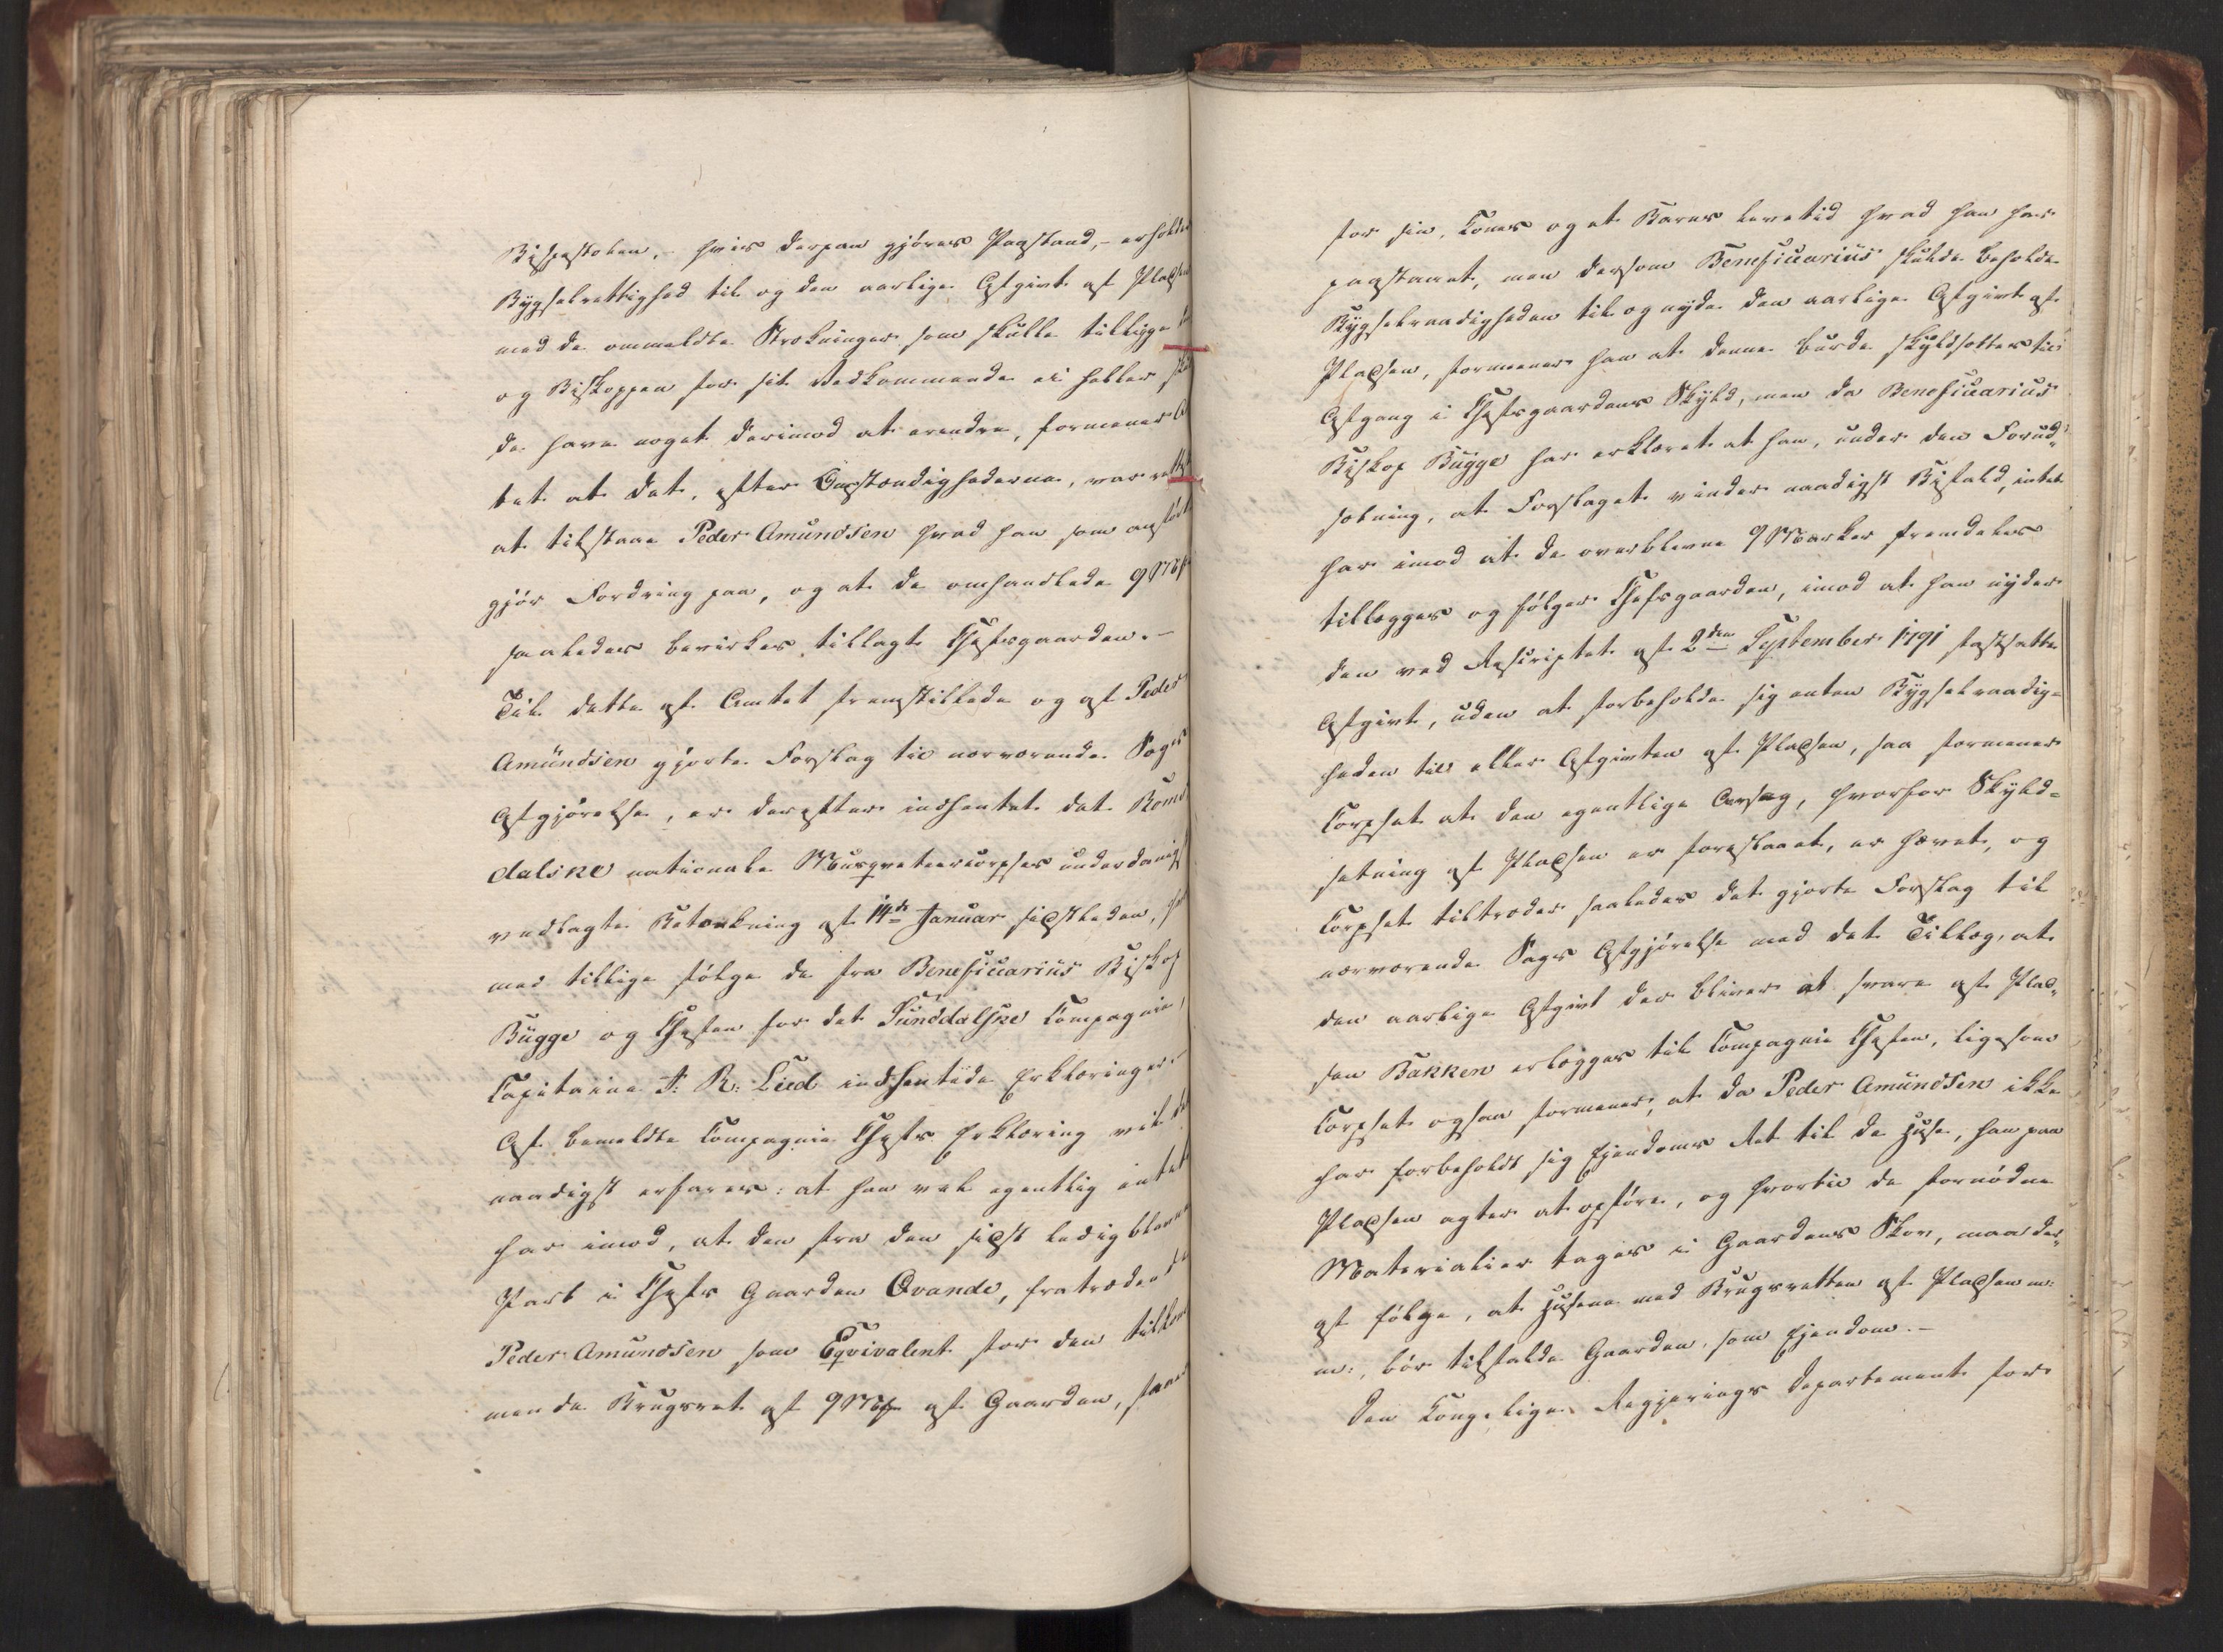 Bispestolen, hvis derpaa gjöres Paastand, - erholder
Bygselrettighed til og den aarlige Afgivt af Pladsen
med de ommeldte Strækninger som skulle tilligge
og Biskoppen for sit Vedkommende ei heller
de have noget derimod at erindre, formener
tet at det, efter Omstændighederne, var
at tilstaae Peder Amundsen hvad han som anfört
gjör Fordring paa, og at de omhandlede 9 Mkr
saaledes bevirkes tillagt Chefsgaarden. -
Til dette af Amtet fremstillede og af Peder
Amundsen gjorte Forslag til nærværende Sags
Afgjörelse, er derefter indhentet det Roms
dalske nationale Musqueteercorpses underdanigst
vedlagte Betænkning af 14de Januar sidstleden,
med tillige fölge de fra Beneficiarius Biskop
Bugge og Chefen for det Sunddalske Compagnie,
Capitaine F: R: Lied indhentede Erklæringer. -
Af bemeldte Compagnie Chefs Erklæring vil
naadigst erfares: at han vel egentlig intet
har imod, at den fra den sidst ledigblevne
Part i Chefs Gaarden Qvande, fratrædende
Peder Amundsen som Eqvivalent for den tilkom
mende Brugsret af 9 Mkr af Gaarden, faaer
for sin, Kones og et Barns Levetid hvad han har
paastaaet, men dersom Beneficiarius skulde beholde
Bygselraadigheden til og nyde den aarlige Afgivt af
Pladsen, formener han at denne burde skyldsættes til
Afgang i Chefsgaardens Skyld, men da Beneficiarius
Biskop Bugge har erklæret at han, under den Forud„
sætning, at Forslaget vinder naadigst Bifald, intet
har imod at de overblevne 9 Marker fremdeles
tillægges og fölger Chefsgaarden, imod at han nyder
den ved Rescriptet af 2den September 1791 fastsatte
Afgivt, uden at forbeholde sig enten Bygselraadig-
heden til eller Afgivten af Pladsen, saa formener
Corpset at den egentlige Aarsag, hvorfor Skyld-
sætning af Pladsen er foreslaaet, er hævet, og
Corpset tiltræder saaledes det gjorte Forslag til
nærværende Sags Afgjörelse med det Tillæg, at
den aarlige Afgivt der bliver at svare af Plad„
sen Bakken erlægges til Compagnie Chefen, ligesom
Corpset ogsaa formener, at da Peder Amundsen ikke
har forbeholdt sig Eiendoms Ret til de Huse, han paa
Pladsen agter at opföre, og hvortil de fornödne
Materialier tages i Gaardens Skov, maa der„
af fölge, at Husene med Brugsretten af Pladsen m:
m:, bör tilfalde Gaarden, som Eiendom. -
Den Kongelige Regjerings Departement for